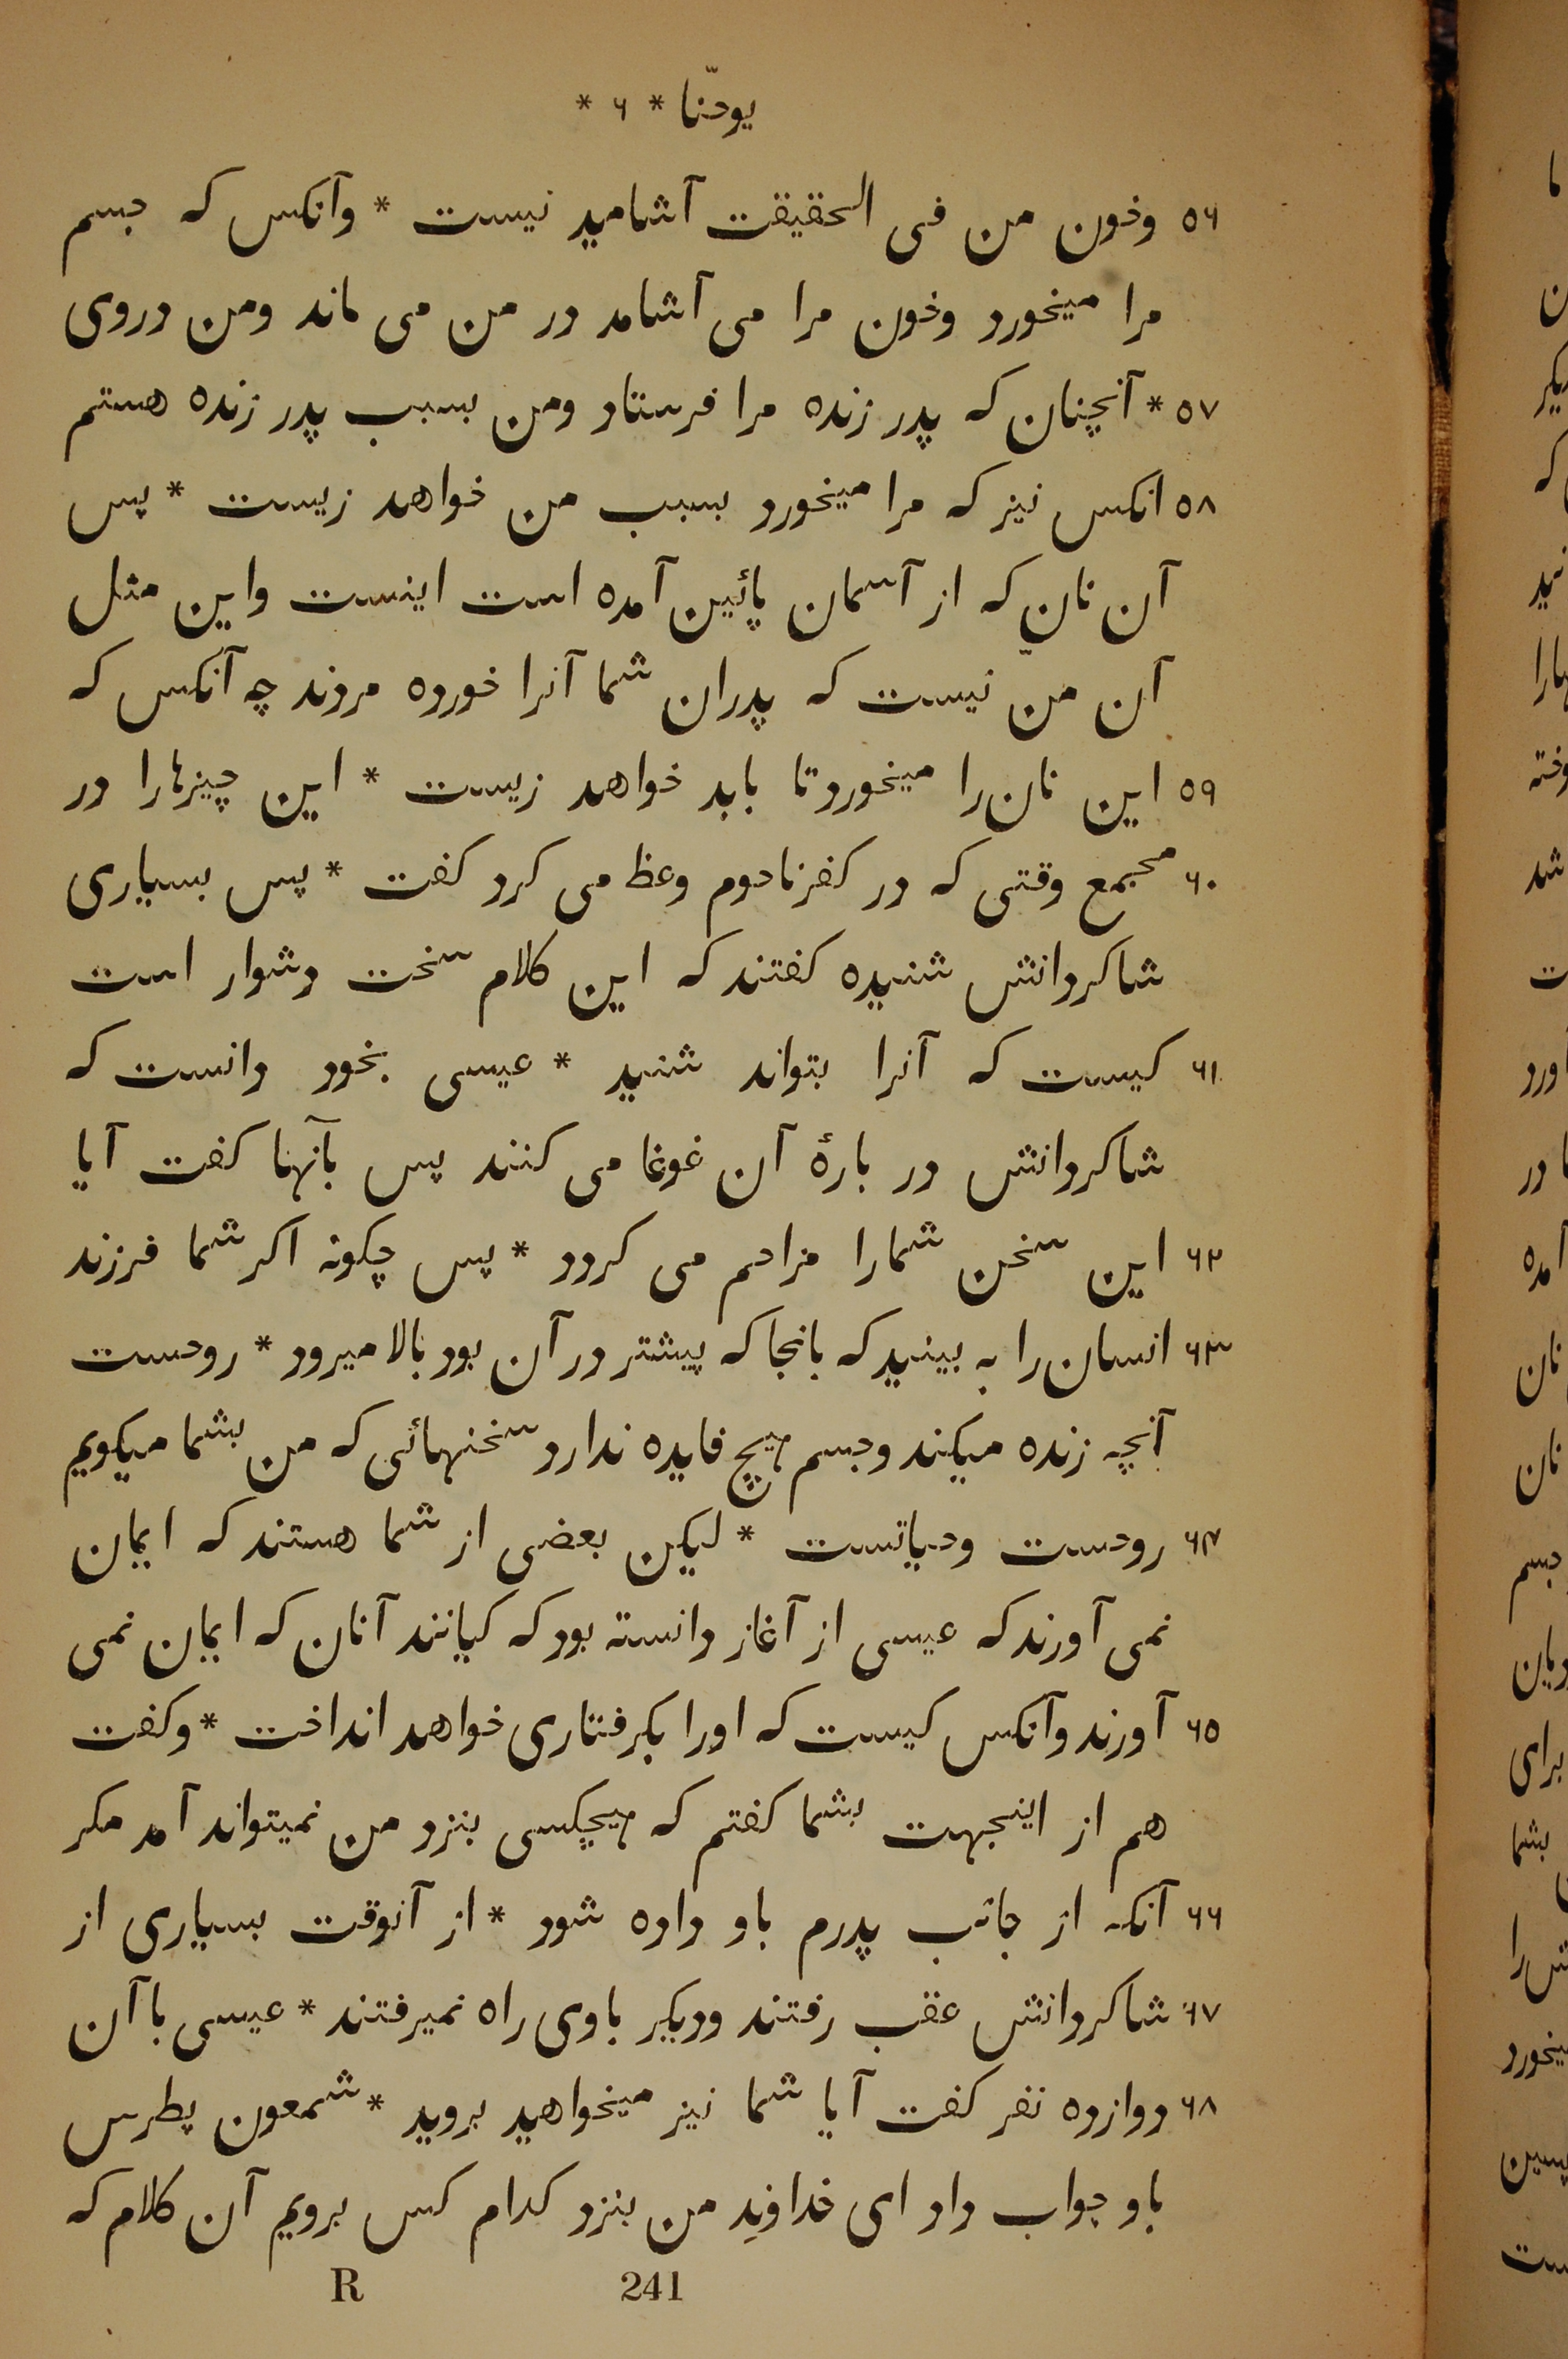 یوحنّا * ۶ *
۵۶ وخون من فی الحقیقت آشامید نیست * وآنکس که جسم
مرا میخورد وخون مرا می آشامد در من می ماند ومن دروی
۵۷ * آنچنان که پدر زنده مرا فرستاد ومن بسبب پدر زنده هستم
۵۸ انکس نیز که مرا میخورد بسبب من خواهد زیست * پس
آن نان که از آسمان پائین آمده است اینست واین مثل
آن منّ نیست که پدران شما آنرا خورده مردند چه آنکس که
۵۹ این نان را میخورد تا بابد خواهد زیست * این چیزها را در
۶۰ مجمع وقتی که در کفرناحوم وعظ می کرد کفت * پس بسیاری
شاکردانش شنیده کفتند که این کلام سخت دشوار است
۶۱ کیست که آنرا بتواند شنید * عیسی بخود دانست که
شاکردانش در بارهٔ آن غوغا می کنند پس بآنها کفت آیا
۶۲ این سخن شمارا مزاحم می کردد * پس چکونه اکر شما فرزند
۶۳ انسان را به بینید که بانجا که پیشتر در آن بود بالا میرود * روحست
آنچه زنده میکند وجسم هیچ فایده ندارد سخنهائی که من بشما میکویم
۶۴ روحست وحیاتست * لیکن بعضی از شما هستند که ایمان
نمی آورند که عیسی از آغاز دانسته بود که کیانند آنان که ایمان نمی
۶۵ آورند وآنکس کیست که اورا بکرفتاری خواهد انداخت * وکفت
هم از اینجهت بشما کفتم که هیچکسی بنزد من نمیتواند آمد مکر
۶۶ آنکه از جانب پدرم باو داده شود * از آنوقت بسیاری از
۶۷ شاکردانش عقب رفتند ودیکر باوی راه نمیرفتند * عیسی با آن
۶۸ دوازده نفر کفت آیا شما نیز میخواهید بروید * شمعون پطرس
باو جواب داد ای خداوندِ من بنزد کدام کس برویم آن کلام که
R 241